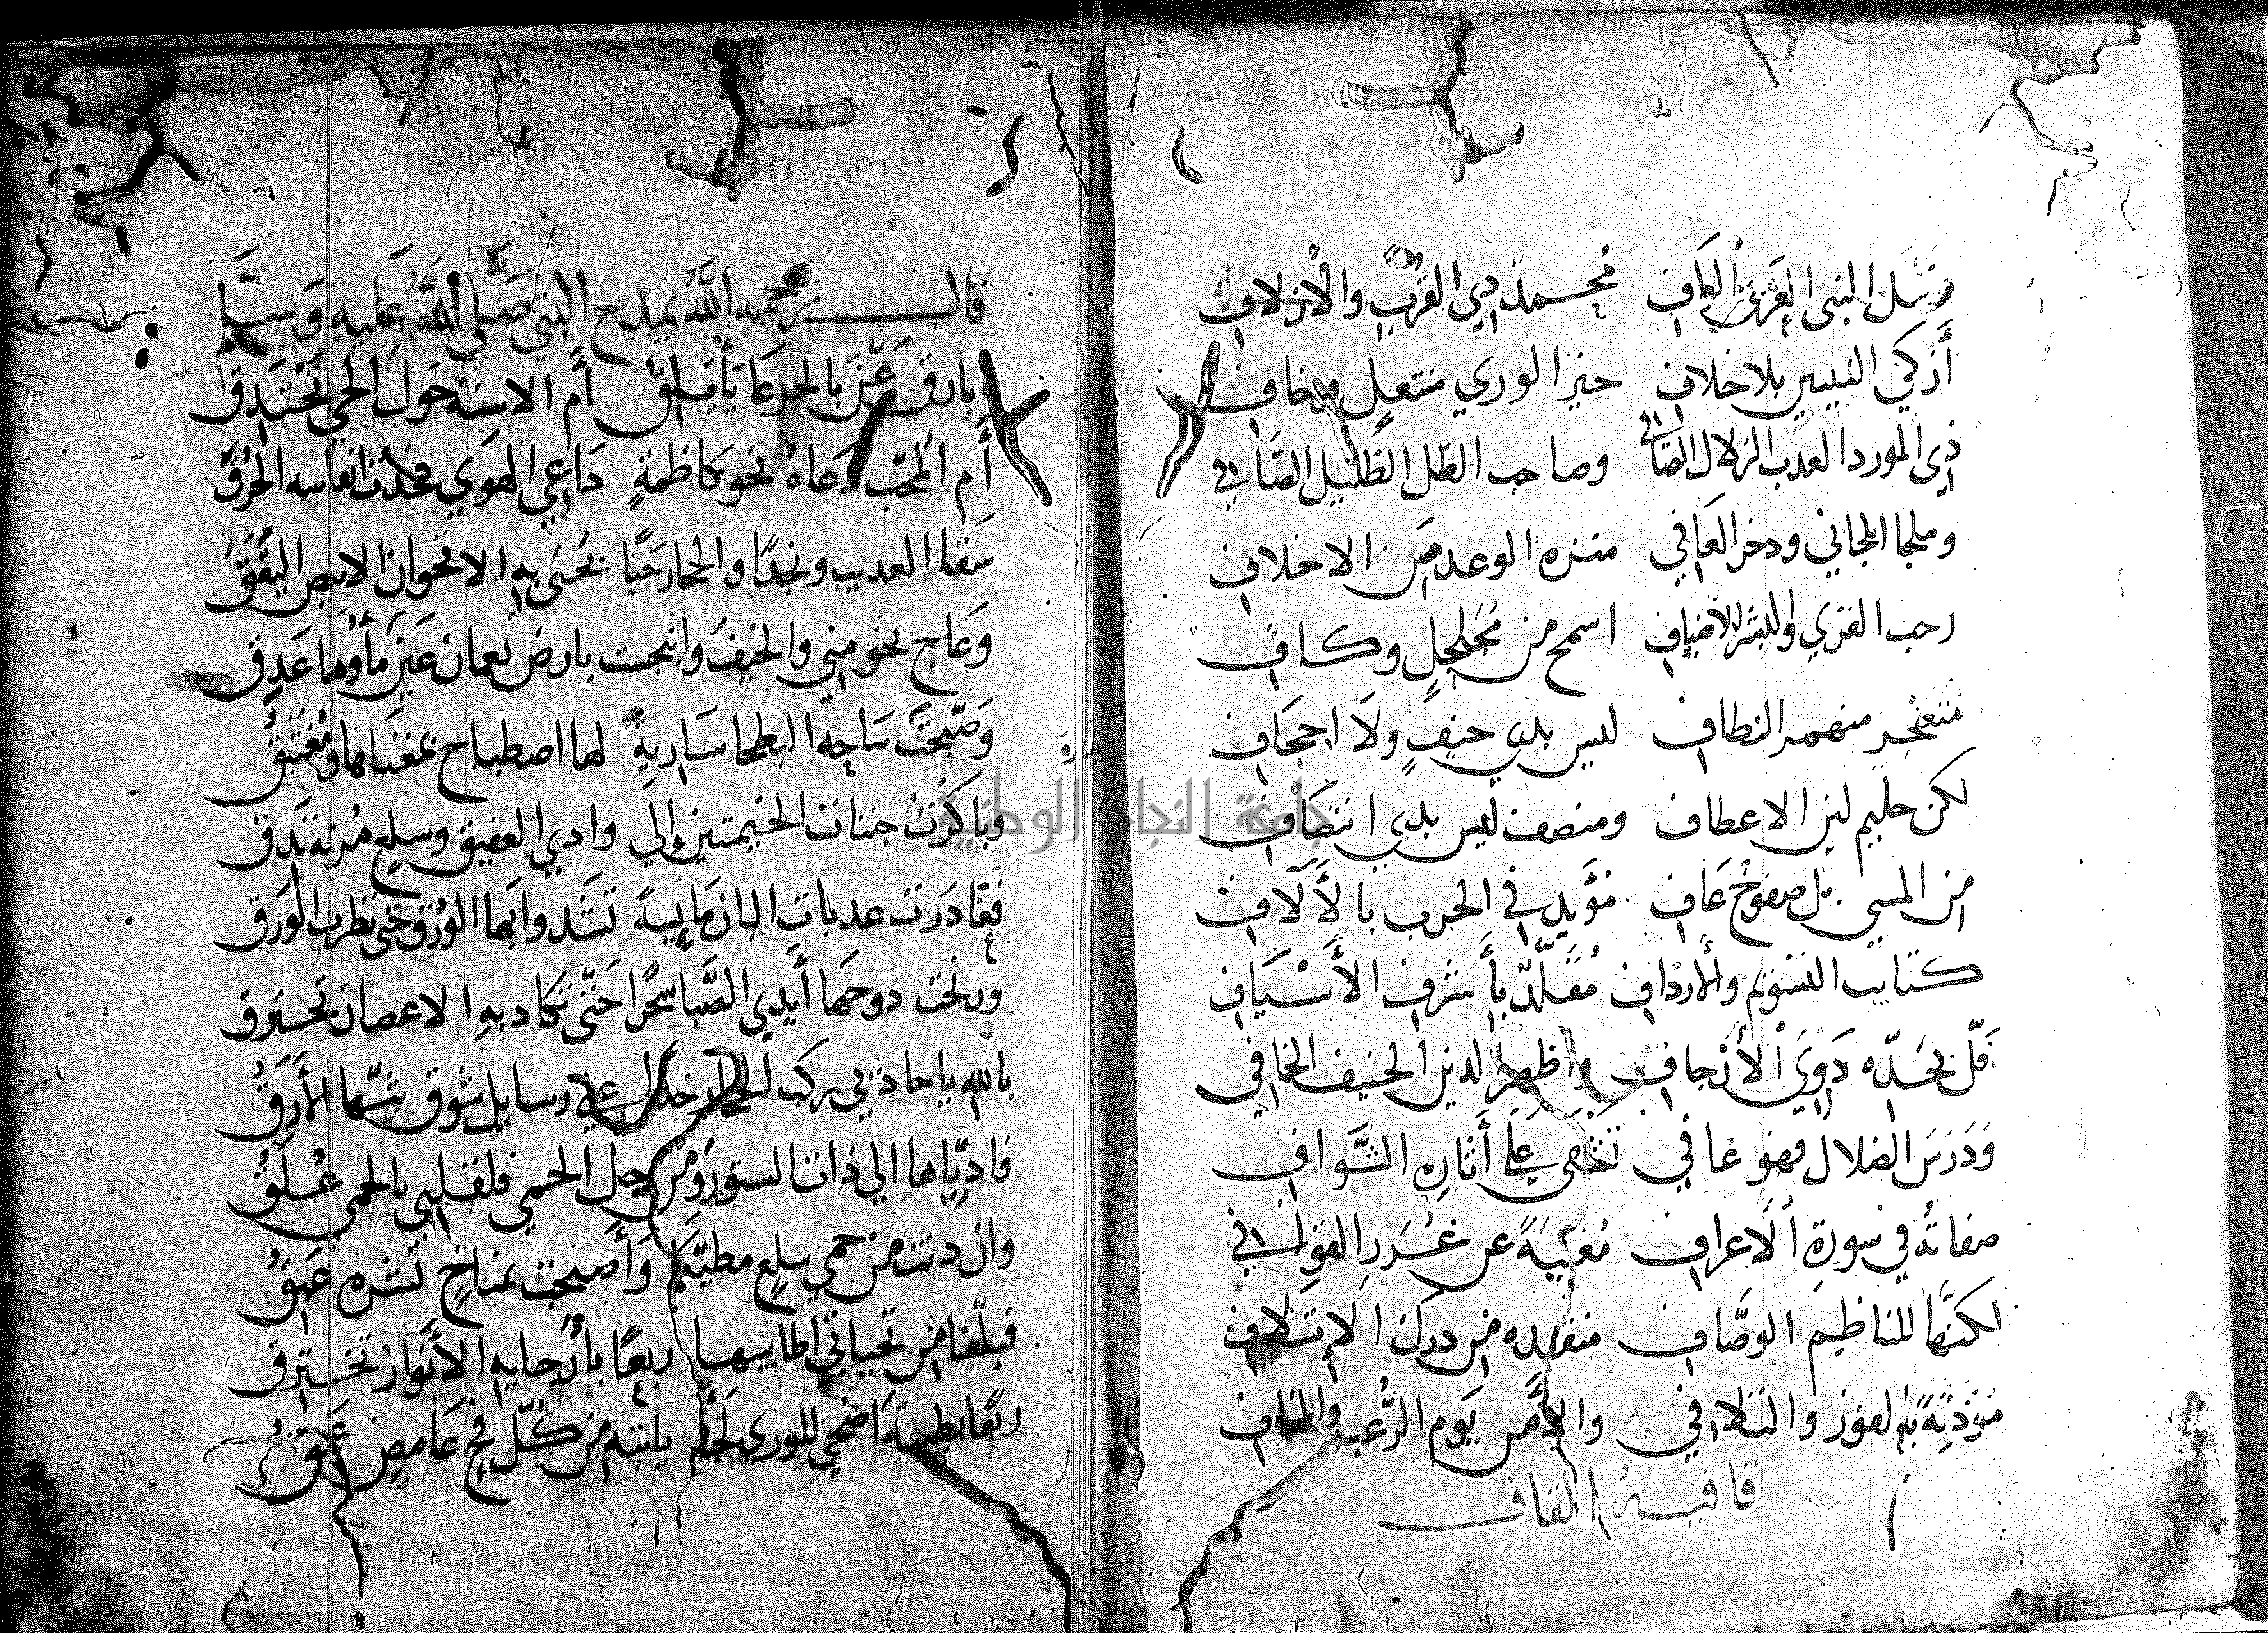 النبي العربي محمد ذي القرب والازلاف
أزكي النبيين بلا خلاف خير الوري منتعل وحاف
ذي المورد العذب الزلال الصافي وصاحب الظل الظليل الضافي
وملجا الجاني وذخر العافي منزه الوعد من الاخلاف
رحب القري والبشر للاضياف اسمح من مجلجل وكاف
مثعنجر منهمر النطاف ليس بذي حيف ولا اجحاف
لكن حليم لين الاعطاف ومنصف ليس بذي انتصاف
من المسي بل صفوح عاف مؤيد في الحرب بالألاف
كتايب التسويم والارداف مقلد بأشرف الأسياف
فل بحده ذوي الأرجاف واظهر الدين الحنيف الخافي
ودرس الضلال فهو عافي تقضي علي أثاره السواف
صفاته في سورة الاعراف مغنية عن غرر القوافي
لكنها للناظم الوصاف منقذه من درك الاتلاف
موذنة بالفوز والتلافي والأمن يوم الرعب والمخاف
قافية القاف
قال رحمه الله يمدح النبي صلى الله عليه وسلم
أبارق عن بالجرعا يأتلق أم الاسنة حول الحي تختدق
أم المحب دعاه نحو كاظمة داعي الهوي فحدت انفاسه الحرق
سقا العذيب ونجدا والحما رحبا يحي به الاقحوان الابيض اليقق
وعاج نحو مني والخيف وانبجست بارض نعمان عين ماؤها غدق
وصبحت ساحه البطحا سارية لها اصطباح بمغناها ومغتبق
وباكرت جنات الخيمتين الي وادي العقيق وسلع مزنة تدق
فغادرت عذبات البان مايسة تشدوا بها الورق حتى تطرب الورق
ورنحت دوحها أيدي الصبا سحرا حتى تكاد به الاغصان تحترق
بالله يا حاذيي ركب الحجاز خذا علي رسايل شوق شبها الأرق
فادياها الي ذات الستور ومن حل الحمي فلقلبي بالحمي علق
وان دنت من حمي سلع مطيكم وأصبحت بمناخ نشره عبق
فبلغا من تحياتي اطايبها ربعا بأرجايه الأنوار تخترق
ربعا بطيبة اضحي للوري يأتيه من كل فج غامض عمق